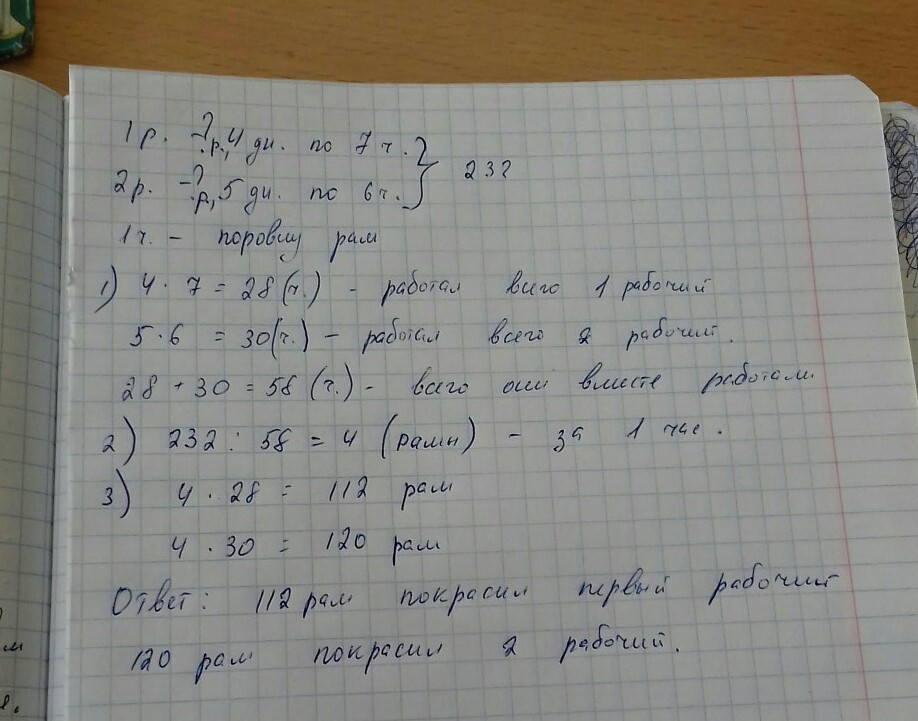 1р. - ? р., 4 дн. по 7 ч. } 232
2р. - ? р., 5 дн. по 6 ч. }
1 ч. - поровну рам
1) 4 · 7 = 28 (ч.) - работал всего 1 рабочий
5 · 6 = 30 (ч.) - работал всего 2 рабочий.
28 + 30 = 58 (ч.) - всего они вместе работали.
2) 232 : 58 = 4 (рамы) - за 1 час.
3) 4 · 28 = 112 рам
4 · 30 = 120 рам
Ответ: 112 рам покрасил первый рабочий
120 рам покрасил 2 рабочий.
м